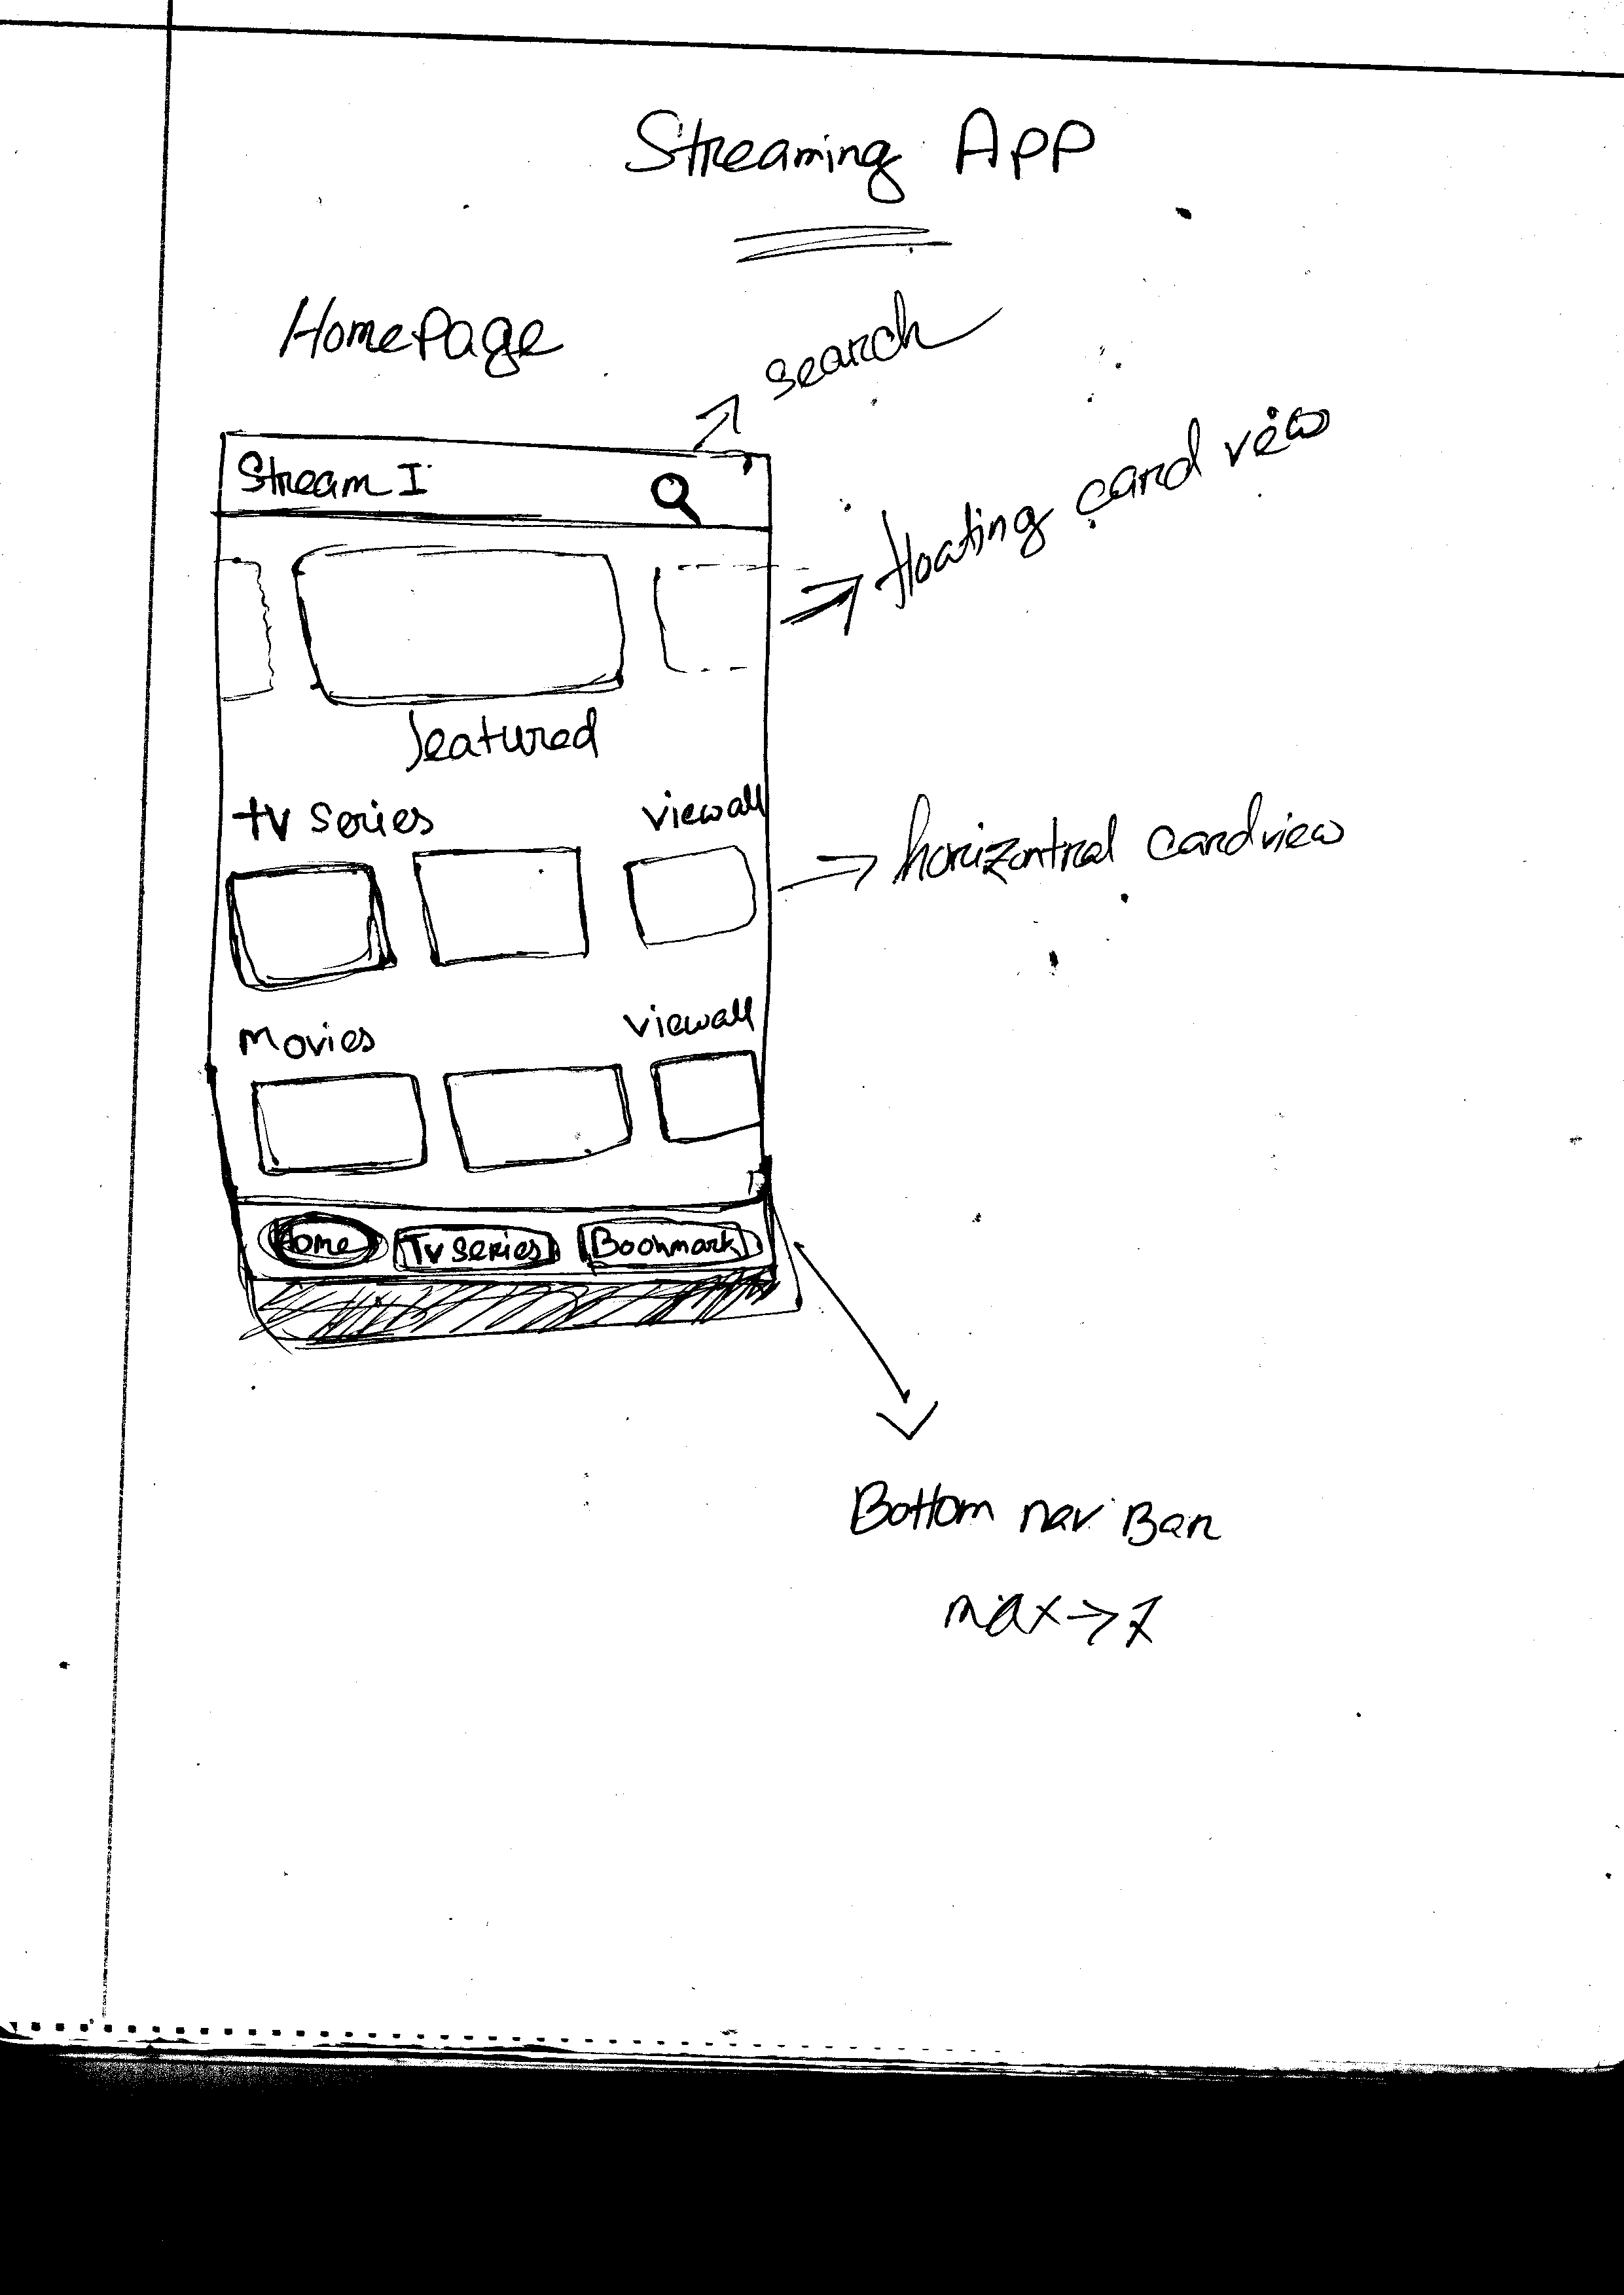 Streaming App
HomePage
search
Stream I
floating card view
featured
TV Series
view all
horizontral cardview
Movies
view all
Home
TV Series
Bookmark
Bottom nav Bar
max → 7